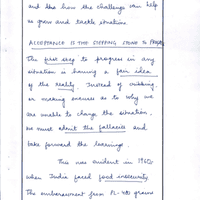 and like how the challenge can help
us grow and tackle situations.
ACCEPTANCE IS THE STEPPING STONE TO PROGRESS
The first step to progress in any
situation is having a fair idea
of the reality. Instead of cribbing,
or making excuses as to why we
are unable to change the situation,
we must admit the fallacies and
take forward the learnings.
This was evident in 1960s
when India faced food insecurity.
The embarrasment from PL-480 grains